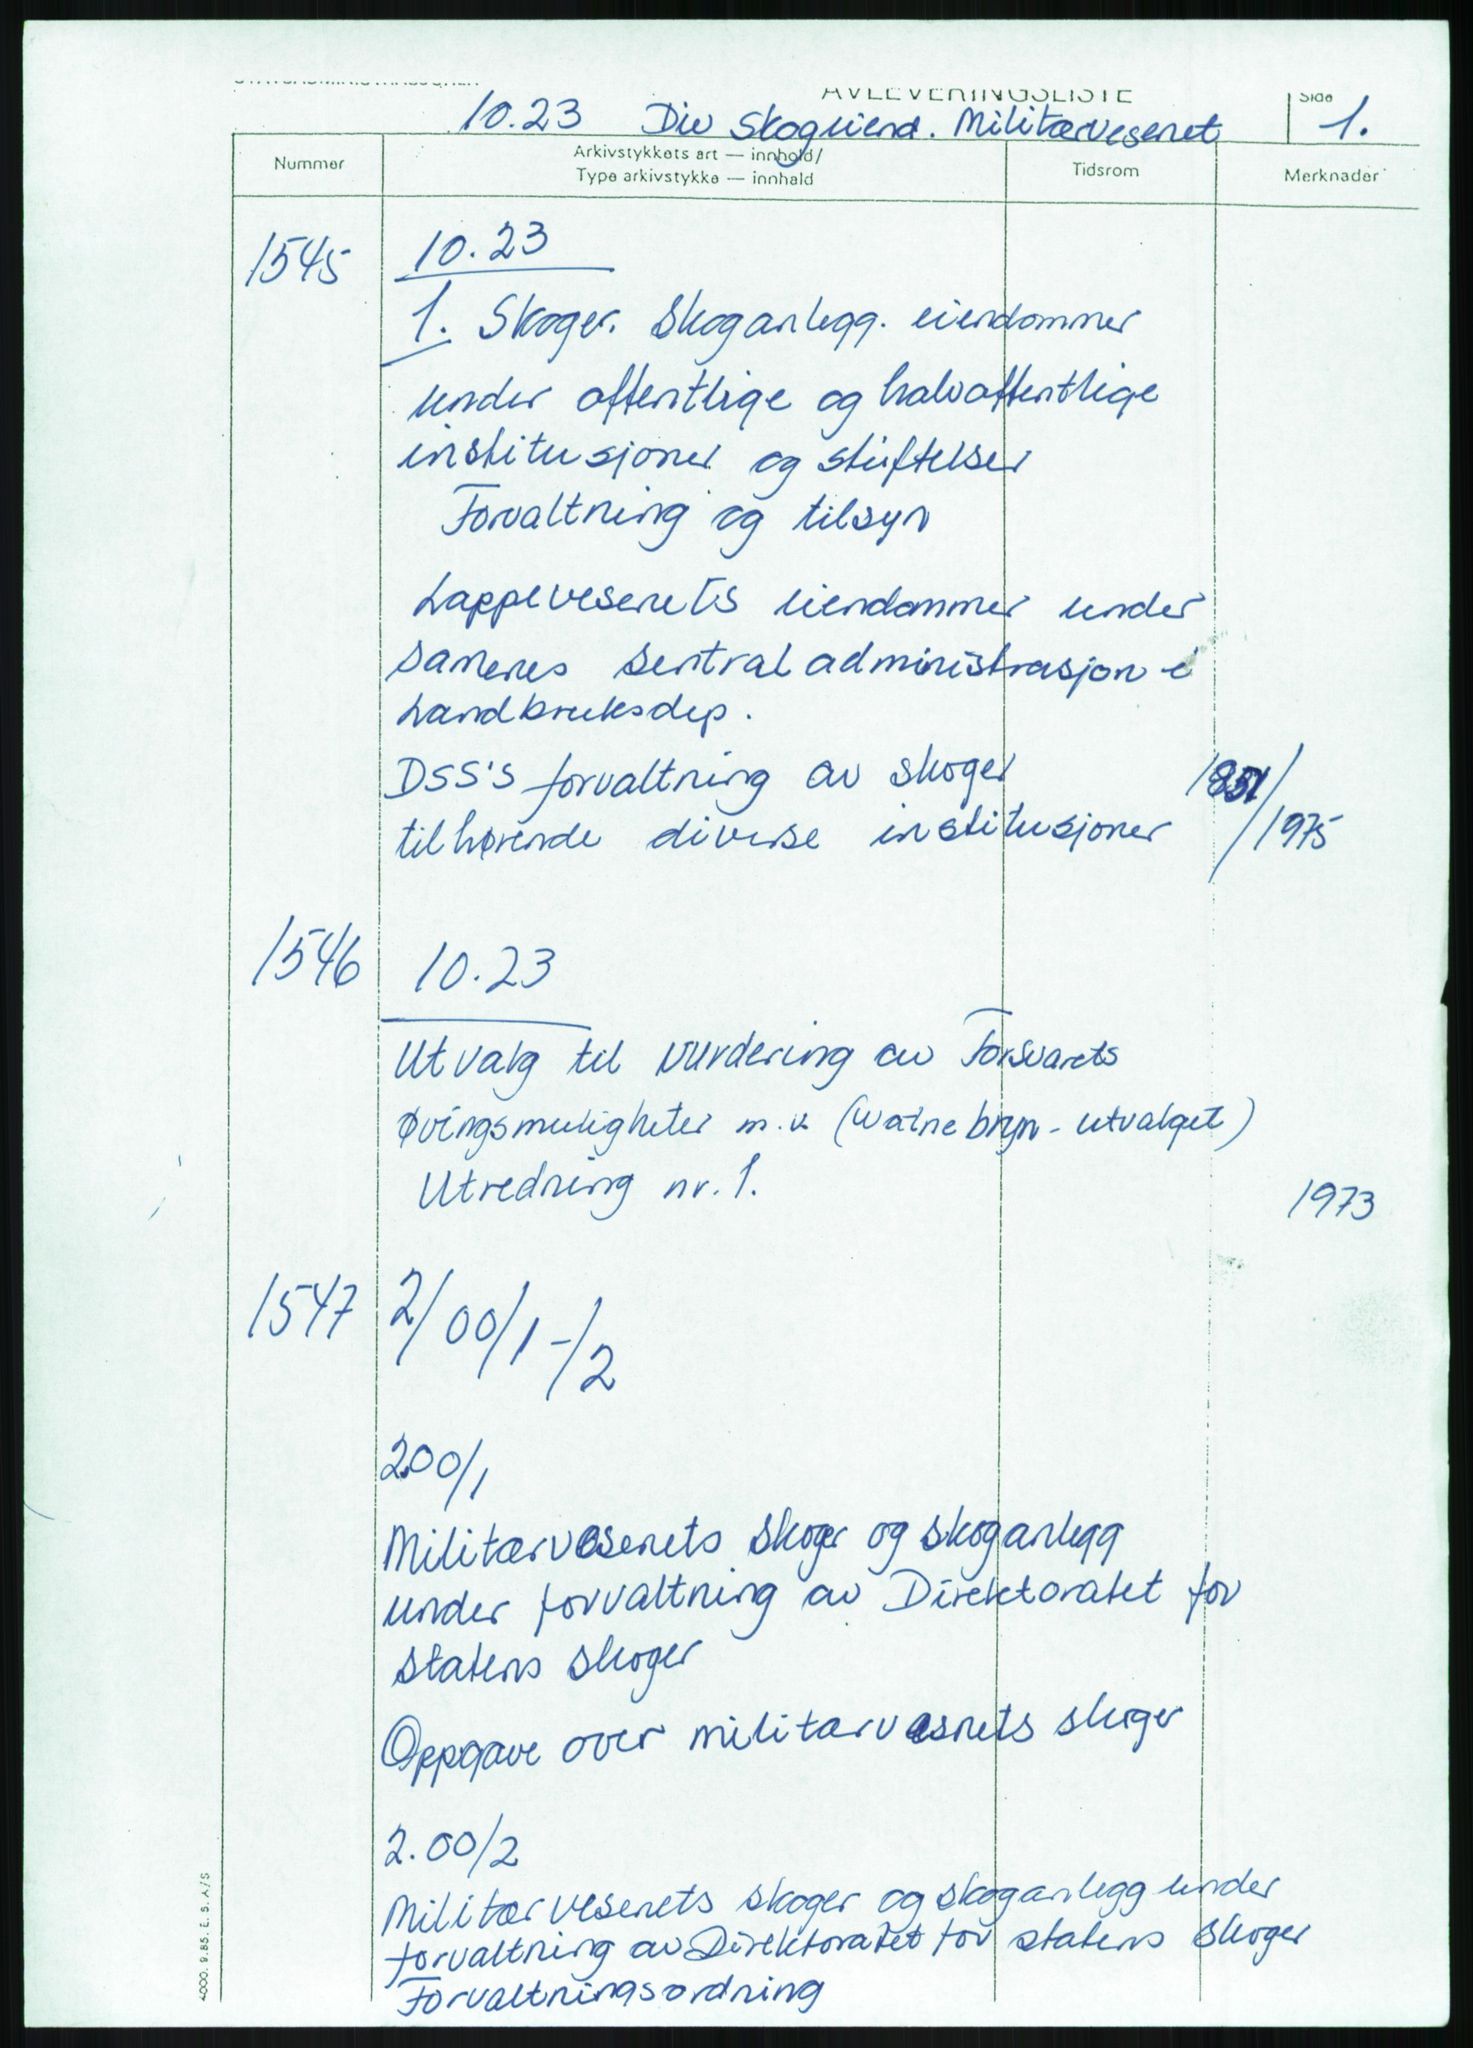 AVLEVERINGSLISTE
Side
10.23 Div skogeiend. Militærvesenet 1.
Nummer
Arkivstykkets art — innhold/
Type arkivstykke — innhald
Tidsrom
Merknader
1545 10.23
1. Skoger. Skoganlegg. eiendommer
under offentlige og halvoffentlige
institusjoner og stiftelser
Forvaltning og tilsyn
Lappevesenets eiendommer under
samenes sentraladministrasjon i
Landbruksdep.
DSS's forvaltning av skoger 1851/
tilhørende diverse institusjoner /1975
1546 10.23
Utvalg til vurdering av Forsvarets
øvingsmuligheter m.v. (Watnebryn-utvalget)
Utredning nr. 1.
1973
1547 2/00/1-/2
2.00/1
Militærvesenets skoger og skoganlegg
under forvaltning av Direktoratet for
statens skoger
Oppgave over militærvesnets skoger
2.00/2
Militærvesenets skoger og skoganlegg under
forvaltning av Direktoratet for statens skoger
Forvaltningsordning
4000. 9.85. E. S. A/S